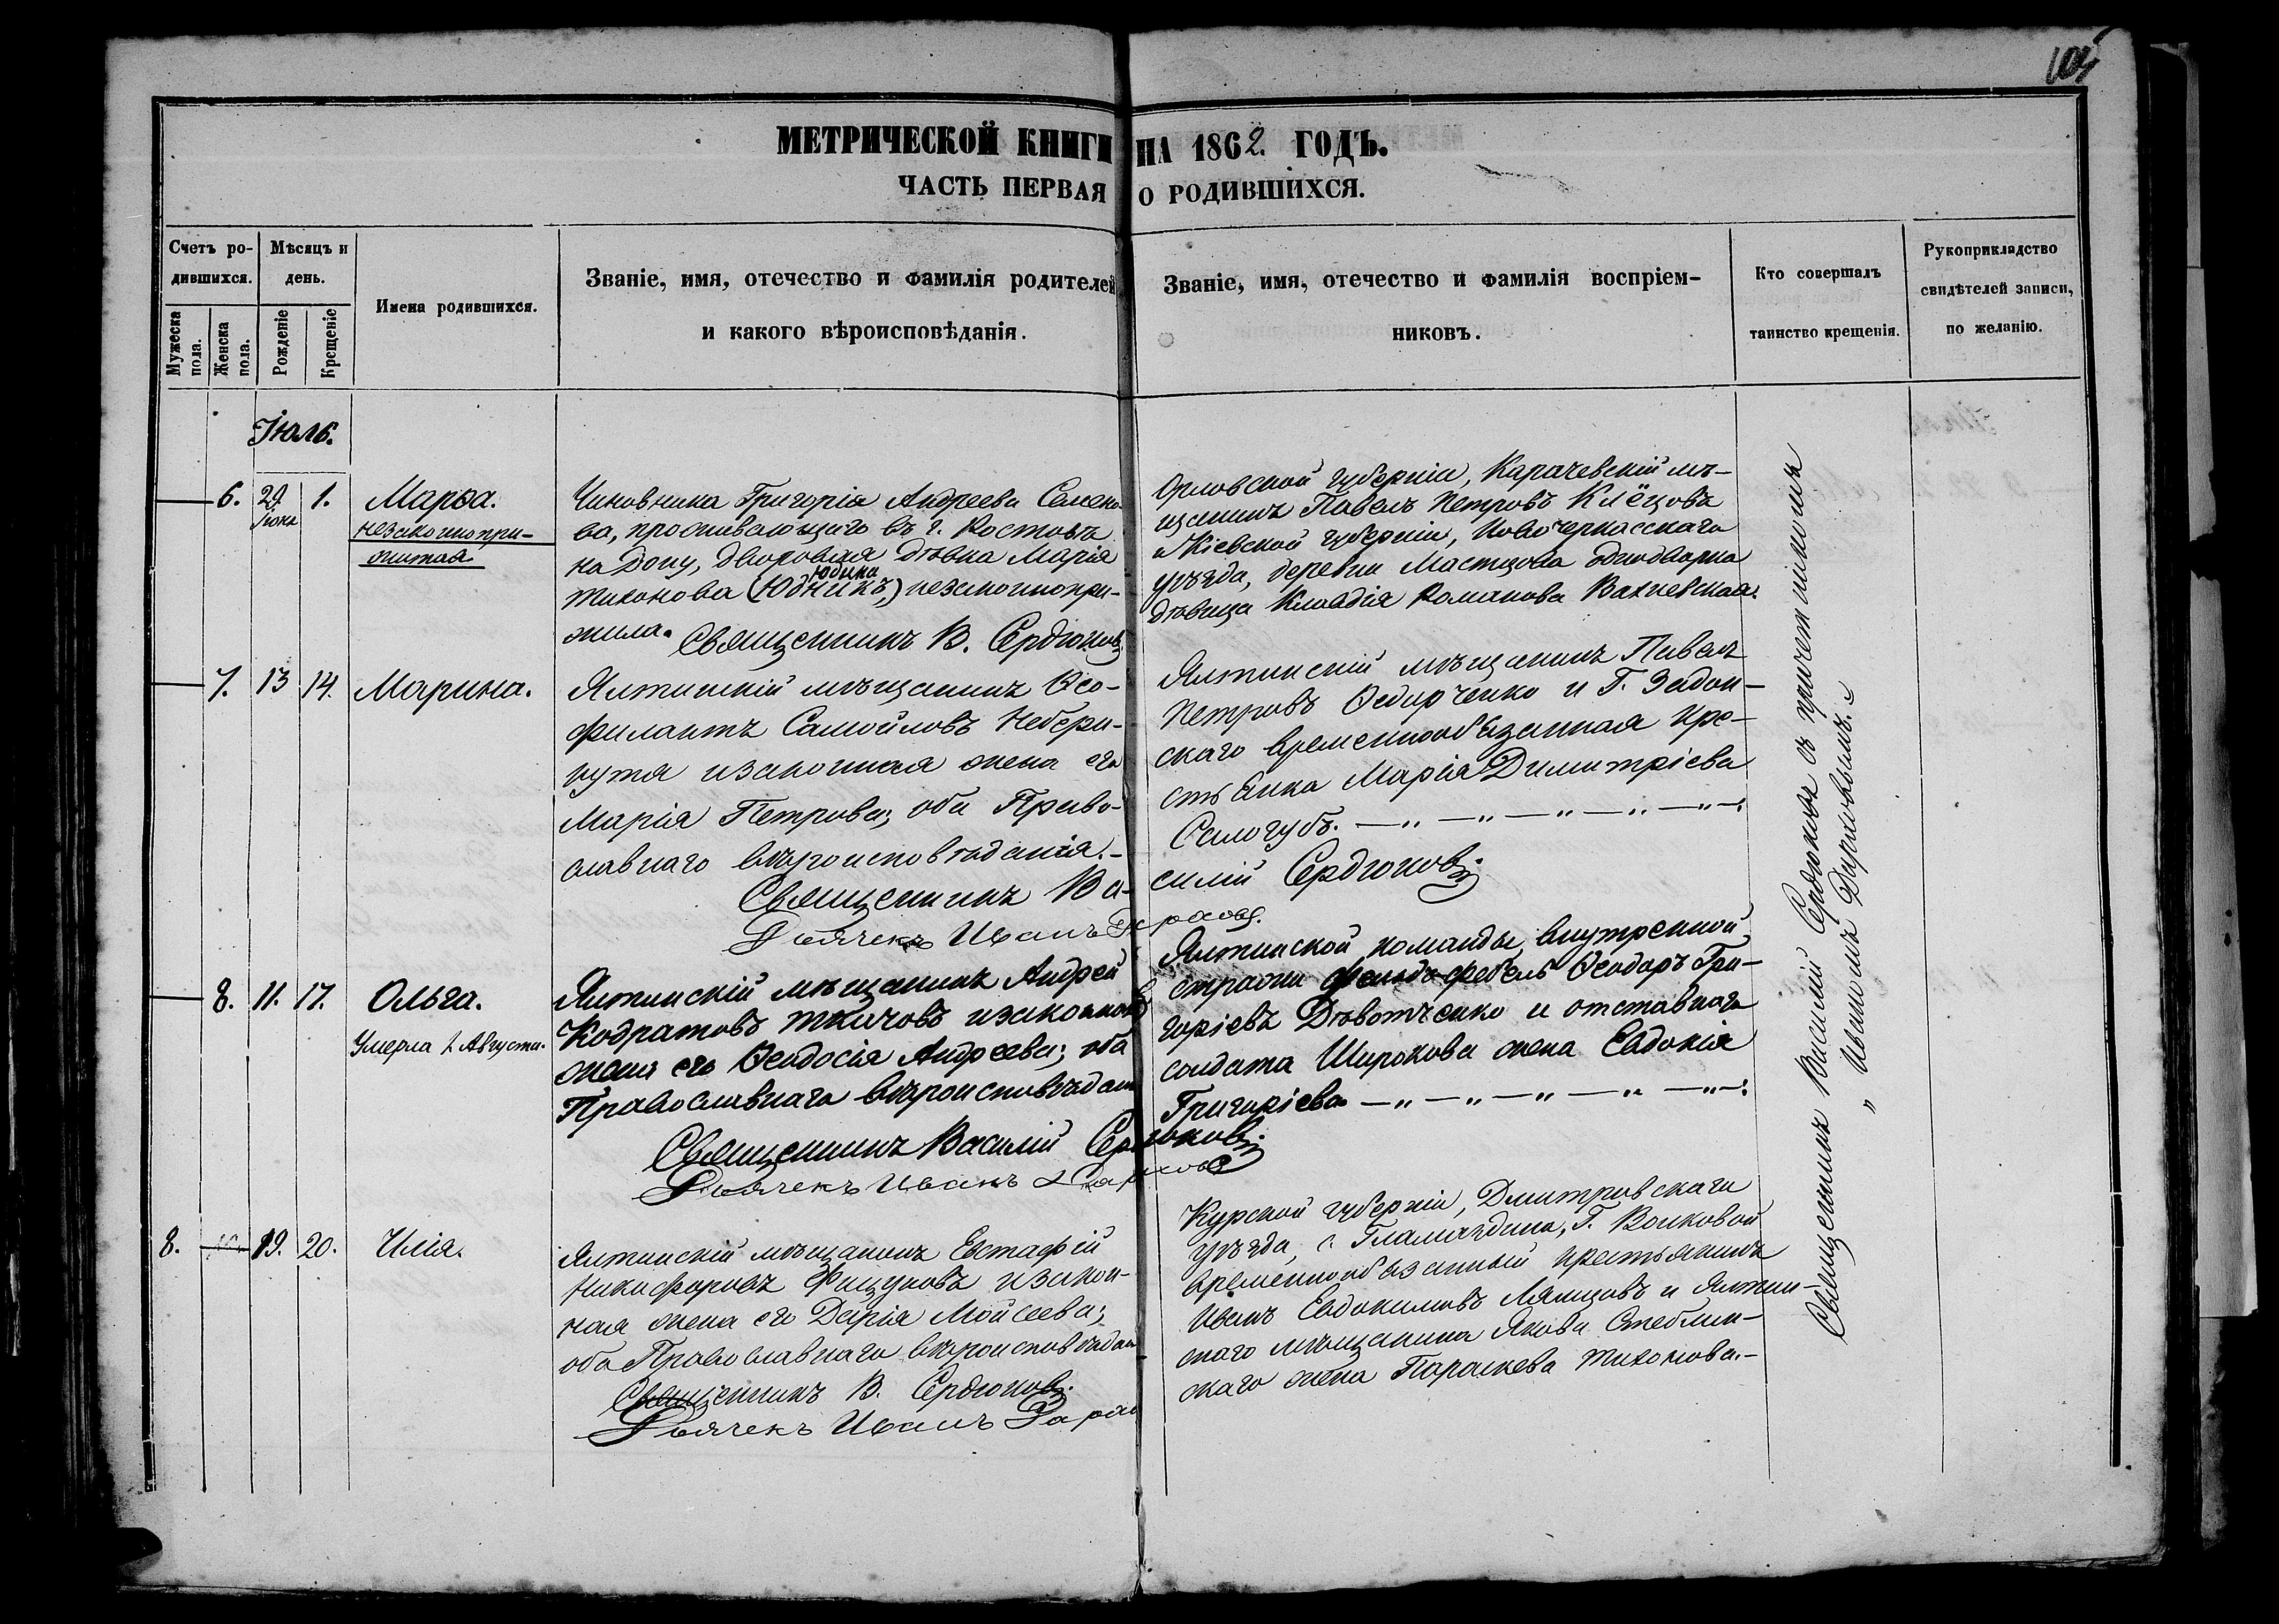 МЕТРИЧЕСКОЙ КНИГИ НА 1862. ГОДЪ.
ЧАСТЬ ПЕРВАЯ О РОДИВШИХСЯ.
Счетъ ро-
дившихся.
Мужеска пола.
Женска пола.
Мѣсяцъ и
день.
Рожденіе
Крещеніе
Имена родившихся.
Званіе, имя, отечество и фамилія родителей
и какого вѣроисповѣданія.
Званіе, имя, отечество и фамилія воспріем-
никовъ.
Кто совершалъ
таинство крещенія.
Рукоприкладство
свидѣтелей записи,
по желанію.
Іюль.
6. 29 Іюня 1. Марѳа.
незаконнопри-
житая
Чиновника Григорія Андреева Семено-
ва, проживающаго въ г. Ростовѣ
на Дону, дворовая дѣвка Марія
Юдина
Тихонова (Юдникъ,) незаконнопри-
жила. Священникъ В. Сердюковъ
Орловской губерніи, Карачевскій мѣ-
щанинъ Павелъ Петровъ Клёцовъ
и Кіевской губерніи, Новочеркасскаго
уѣзда, деревни Мастцова однодворка
дѣвица Клавдія Романова Вахневская.
7. 13 14. Марина.
Ялтинскій мѣщанинъ Ѳео-
филактъ Самойловъ Небери-
кутя изаконная жена его
Марія Петрова; оба Право-
славнаго вѣроисповѣданія.-
Священникъ Ва-
силій Сердюковъ.
Дьячекъ Иванъ
Ялтинскій мѣщанинъ Павелъ
Петровъ Ѳедорченко и Г. Задон-
скаго временнообязанная кре-
стьянка Марія Димитріева
Самогубъ. —„—„—„—„—„—.
8. 11. 17. Ольга.
Умерла 1 Августа.
Ялтинскій мѣщанинъ Андрей
Кодратовъ Ткачовъ изаконная
жена его Ѳеодосія Андреева; оба
Православнаго вѣроисповѣдан
Священникъ Василій Сердюковъ.
Дьячекъ Иванъ
Ялтинской команды внутренной
стражи фельдфебель Ѳеодоръ Гри-
горіевъ Дѣвотченко и отставнаго
солдата Широкова жена Евдокія
Григоріева —„—„—„—„—„—.
8. 19. 20. Илія.
Ялтинскій мѣщанинъ Евстафій
Никифоровъ Фицуковъ изакон-
ная жена его Дарія Мойсеева;
оба Православнаго вѣроисповѣдан
Священникъ В. Сердюковъ.
Дьячекъ Иванъ
Курской губерніи, Дмитровскаго
уѣзда, с. Гламаздина, Г. Волковой
временнообязанный крестьянинъ
Иванъ Евдокимовъ Лямцовъ и Ялтин-
скаго мѣщанина Якова Стеблин-
скаго жена Параскева Тихонова.-
Священникъ Василій Сердюковъ съ причетникомъ
„ Иваномъ